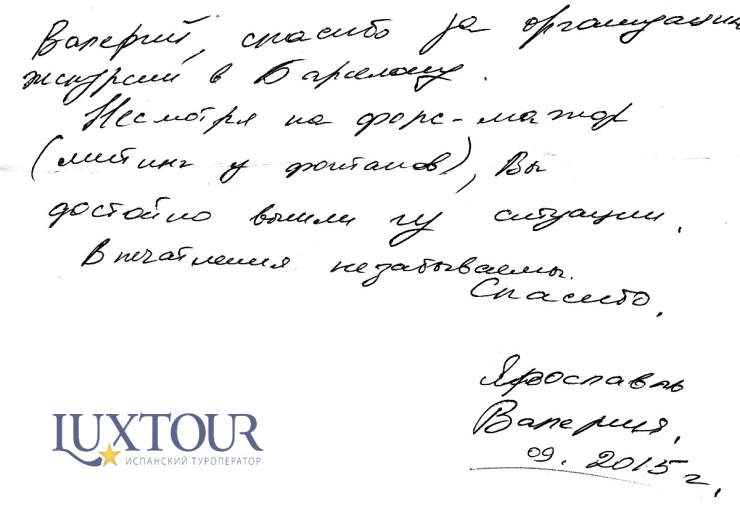 Валерий, спасибо за организацию
экскурсий в Барселону.
Несмотря на форс-мажор
(митинг у фонтанов), Вы
достойно вышли из ситуации.
Впечатления незабываемы.
Спасибо.
Ярославль
Валерия.
09. 2015 г.
LUXTOUR
ИСПАНСКИЙ ТУРОПЕРАТОР